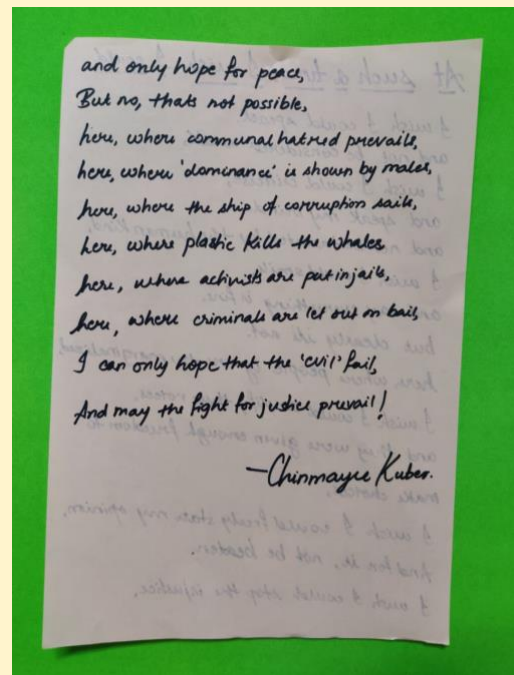 and only hope for peace,
But no, thats not possible,
here, where communal hatred prevails,
here, where 'dominance' is shown by males,
here, where the ship of corruption sails,
here, where plastic kills the whales
here, where activists are put in jails,
here, where criminals are let out on bail,
I can only hope that the 'evil' fail,
And may the fight for justice prevail!
—Chinmayee Kuber.